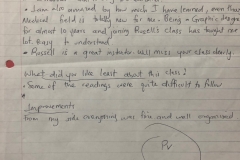 • I am also amazed by how much I have learned, even though
Medical field is totally new for me. Being a Graphic designer
for almost 10 years and joining Russell's class has taught me
lot. Easy to understand
• Russell is a great instructor will miss your class dearly.
What did you like least about this class?
• Some of the readings were quite difficult to follow
Improvements
From my side everything was fine and well organized